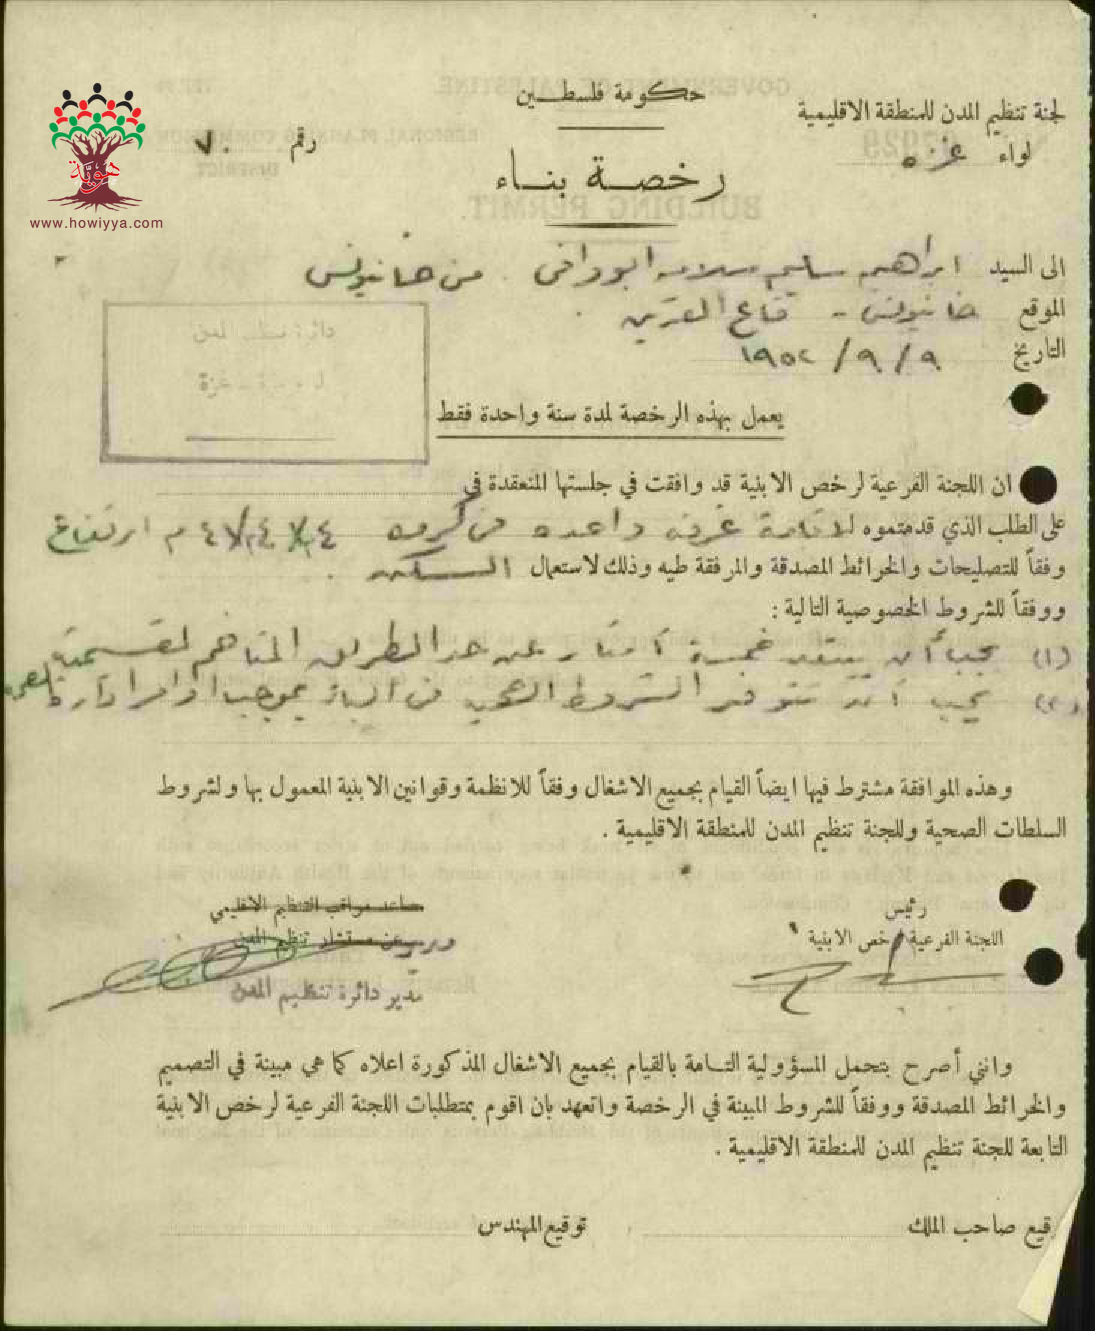 حكومة فلسطين
لجنة تنظيم المدن للمنطقة الاقليمية
لواء غزه
رقم ٧٠
هوية
www.howiyya.com
رخصة بناء
الى السيد ابراهيم سليم سلامه ابو دافى من خانيونس
الموقع خانيونس - قاع القرين
التاريخ ٩ / ٩ / ١٩٥٢
دائرة تنظيم المدن
غزة
يعمل بهذه الرخصة لمدة سنة واحدة فقط
ان اللجنة الفرعية لرخص الابنية قد وافقت في جلستها المنعقدة في
على الطلب الذي قدمتموه لاقامة غرفه واحده من ٤ ارتفاع
وفقاً للتصليحات والخرائط المصدقة والمرفقة طيه وذلك لاستعمال السكن .
ووفقاً للشروط الخصوصية التالية :
(١) يجب أن يبتعد خمسة أمتار عن حد الطريق المتاخم لقسيمة
(٢) يجب أن تتوفر الشروط الصحيه في البناء بموجب اوامر دائرة الصحه
وهذه الموافقة مشترط فيها ايضاً القيام بجميع الاشغال وفقاً للانظمة وقوانين الابنية المعمول بها ولشروط
السلطات الصحية وللجنة تنظيم المدن للمنطقة الاقليمية .
رئيس
اللجنة الفرعية لرخص الابنية
مساعد مراقب التنظيم الاقليمي
عن مستشار تنظيم المدن
مدير دائرة تنظيم المدن
وانني أصرح بتحمل المسؤولية التامة بالقيام بجميع الاشغال المذكورة اعلاه كما هي مبينة في التصميم
والخرائط المصدقة ووفقاً للشروط المبينة في الرخصة واتعهد بان اقوم بمتطلبات اللجنة الفرعية لرخص الابنية
التابعة للجنة تنظيم المدن للمنطقة الاقليمية .
قيع صاحب الملك
توقيع المهندس